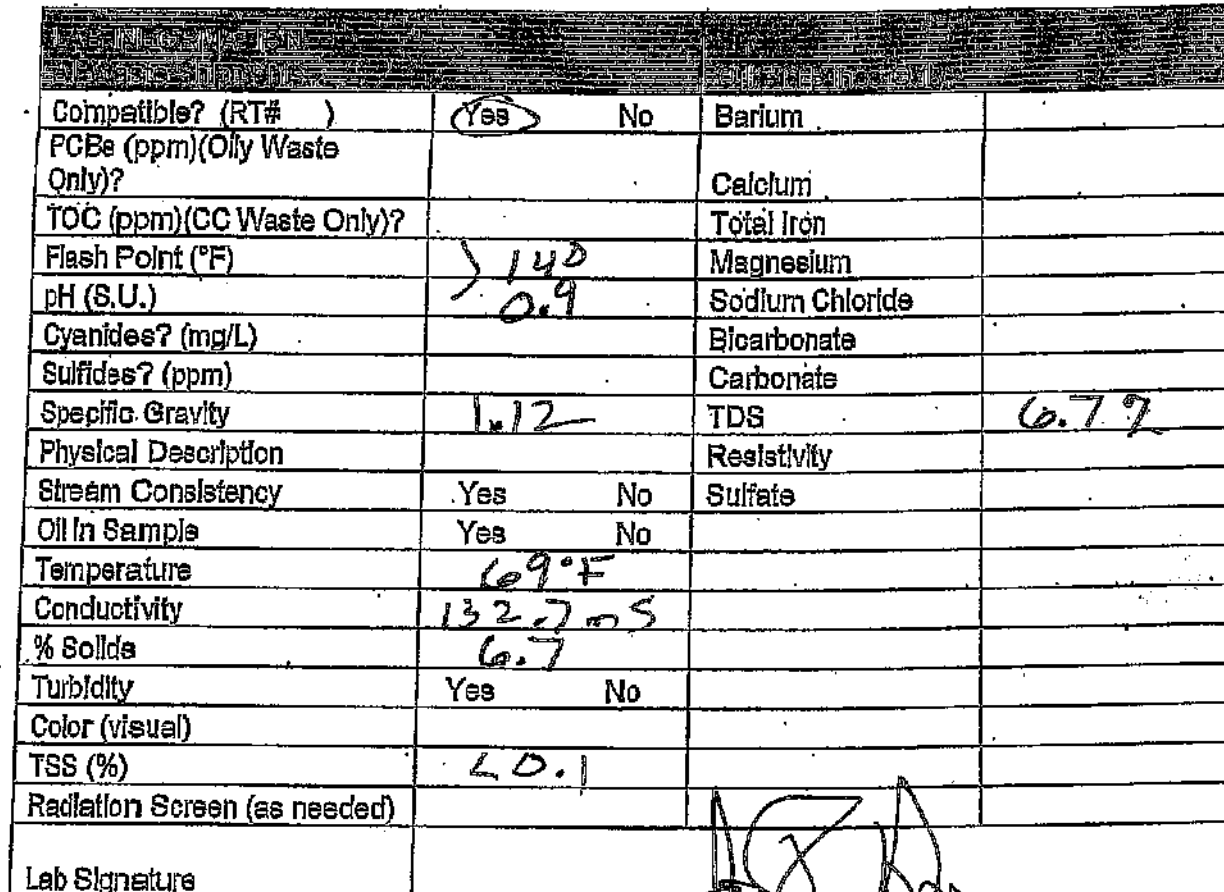 LAB INFORMATION
All Waste Shipments
Compatible? (RT# ) Yes No Barium
PCBs (ppm)(Oily Waste
Only)? Calcium
TOC (ppm)(CC Waste Only)? Total Iron
Flash Point (°F) >140 Magnesium
pH (S.U.) 0.9 Sodium Chloride
Cyanides? (mg/L) Bicarbonate
Sulfides? (ppm) Carbonate
Specific Gravity 1.12 TDS 6.7%
Physical Description Resistivity
Stream Consistency Yes No Sulfate
Oil in Sample Yes No
Temperature 69°F
Conductivity 132.7 mS
% Solids 6.7
Turbidity Yes No
Color (visual)
TSS (%) <0.1
Radiation Screen (as needed)
Lab Signature